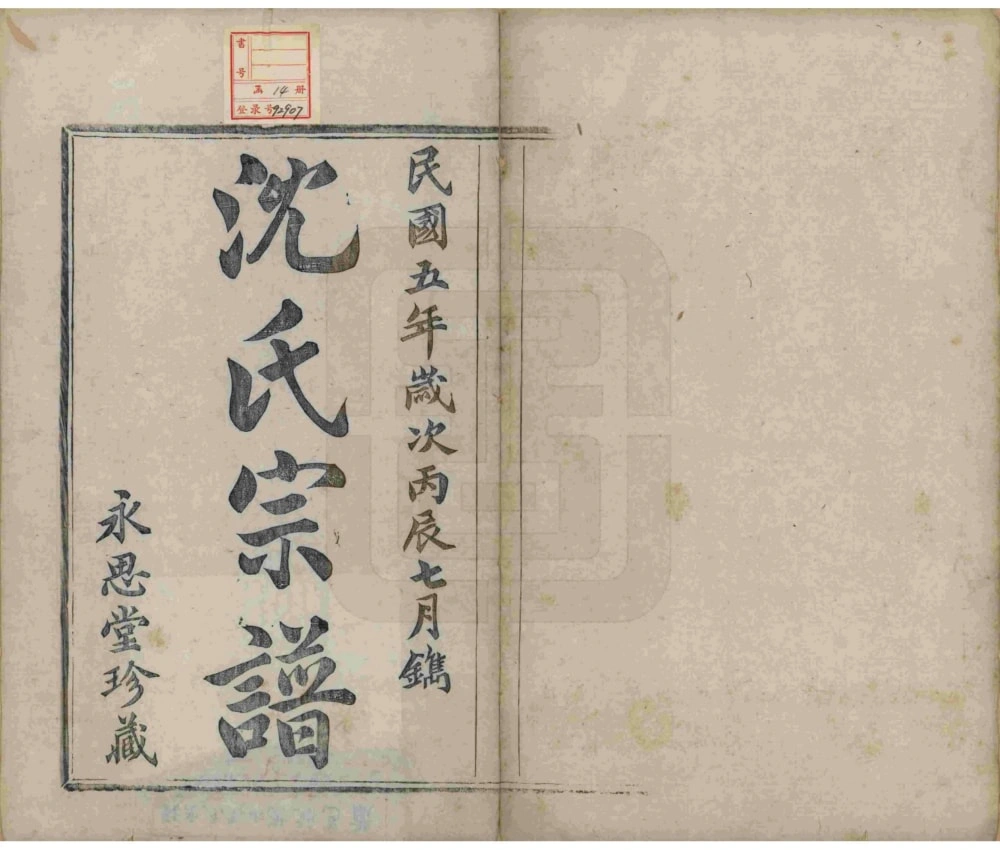 民國五年歲次丙辰七月鐫
沈氏宗譜
永思堂珍藏
書号
函 14 册
登录号92907